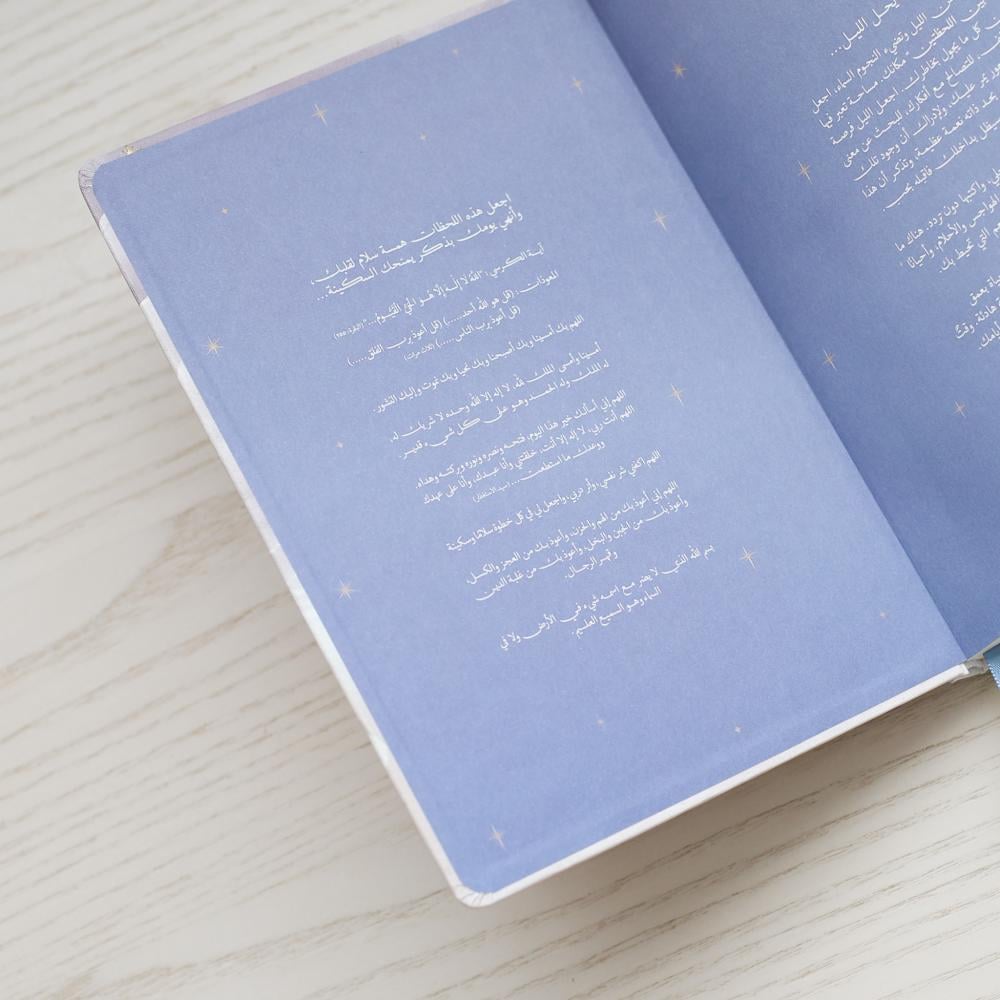 يحل الليل...
الليل وتضيء النجوم السماء، اجعل
اللحظتين "مكانك" مساحة تعبر فيها
كل ما يجول بخاطرك. اجعل الليل فرصة
للتصالح مع أفكارك، للبحث عن معنى
مر عليك، ولإدراك أن وجود تلك
بحد ذاته نعمة عظيمة، وتذكر أن هذا
سيظل بداخلك فأقبله بحب.
واكتبها دون تردد، هناك ما
الهواجس والأحلام، وأحيانًا
التي تحيط بك.
بعمق
هادئة، وقتًا
اجعل هذه اللحظات همسة سلام لقلبك،
وأنهي يومك بذكر يمنحك السكينة...
آية الكرسي: "اللَّهُ لَا إِلَٰهَ إِلَّا هُوَ الْحَيُّ الْقَيُّومُ..." (البقرة: 255)
المعوذات: (قل هو الله أحد.....) (قل أعوذ برب الفلق.....)
(قل أعوذ برب الناس.....) (ثلاث مرات)
اللهم بك أمسينا وبك أصبحنا وبك نحيا وبك نموت وإليك النشور.
أمسينا وأمسى الملك لله، لا إله إلا الله وحده لا شريك له،
له الملك وله الحمد وهو على كل شيء قدير.
اللهم إني أسألك خير هذا اليوم، فتحه ونصره ونوره وبركته وهداه.
اللهم أنت ربي، لا إله إلا أنت، خلقتني وأنا عبدك، وأنا على عهدك
ووعدك ما استطعت... (سيد الاستغفار)
اللهم اكفني شر نفسي، وأنر دربي، واجعل لي في كل خطوة سلامًا وسكينة
اللهم إني أعوذ بك من الهم والحزن، وأعوذ بك من العجز والكسل،
وأعوذ بك من الجبن والبخل، وأعوذ بك من غلبة الدين
وقهر الرجال.
بسم الله الذي لا يضر مع اسمه شيء في الأرض ولا في
السماء وهو السميع العليم.